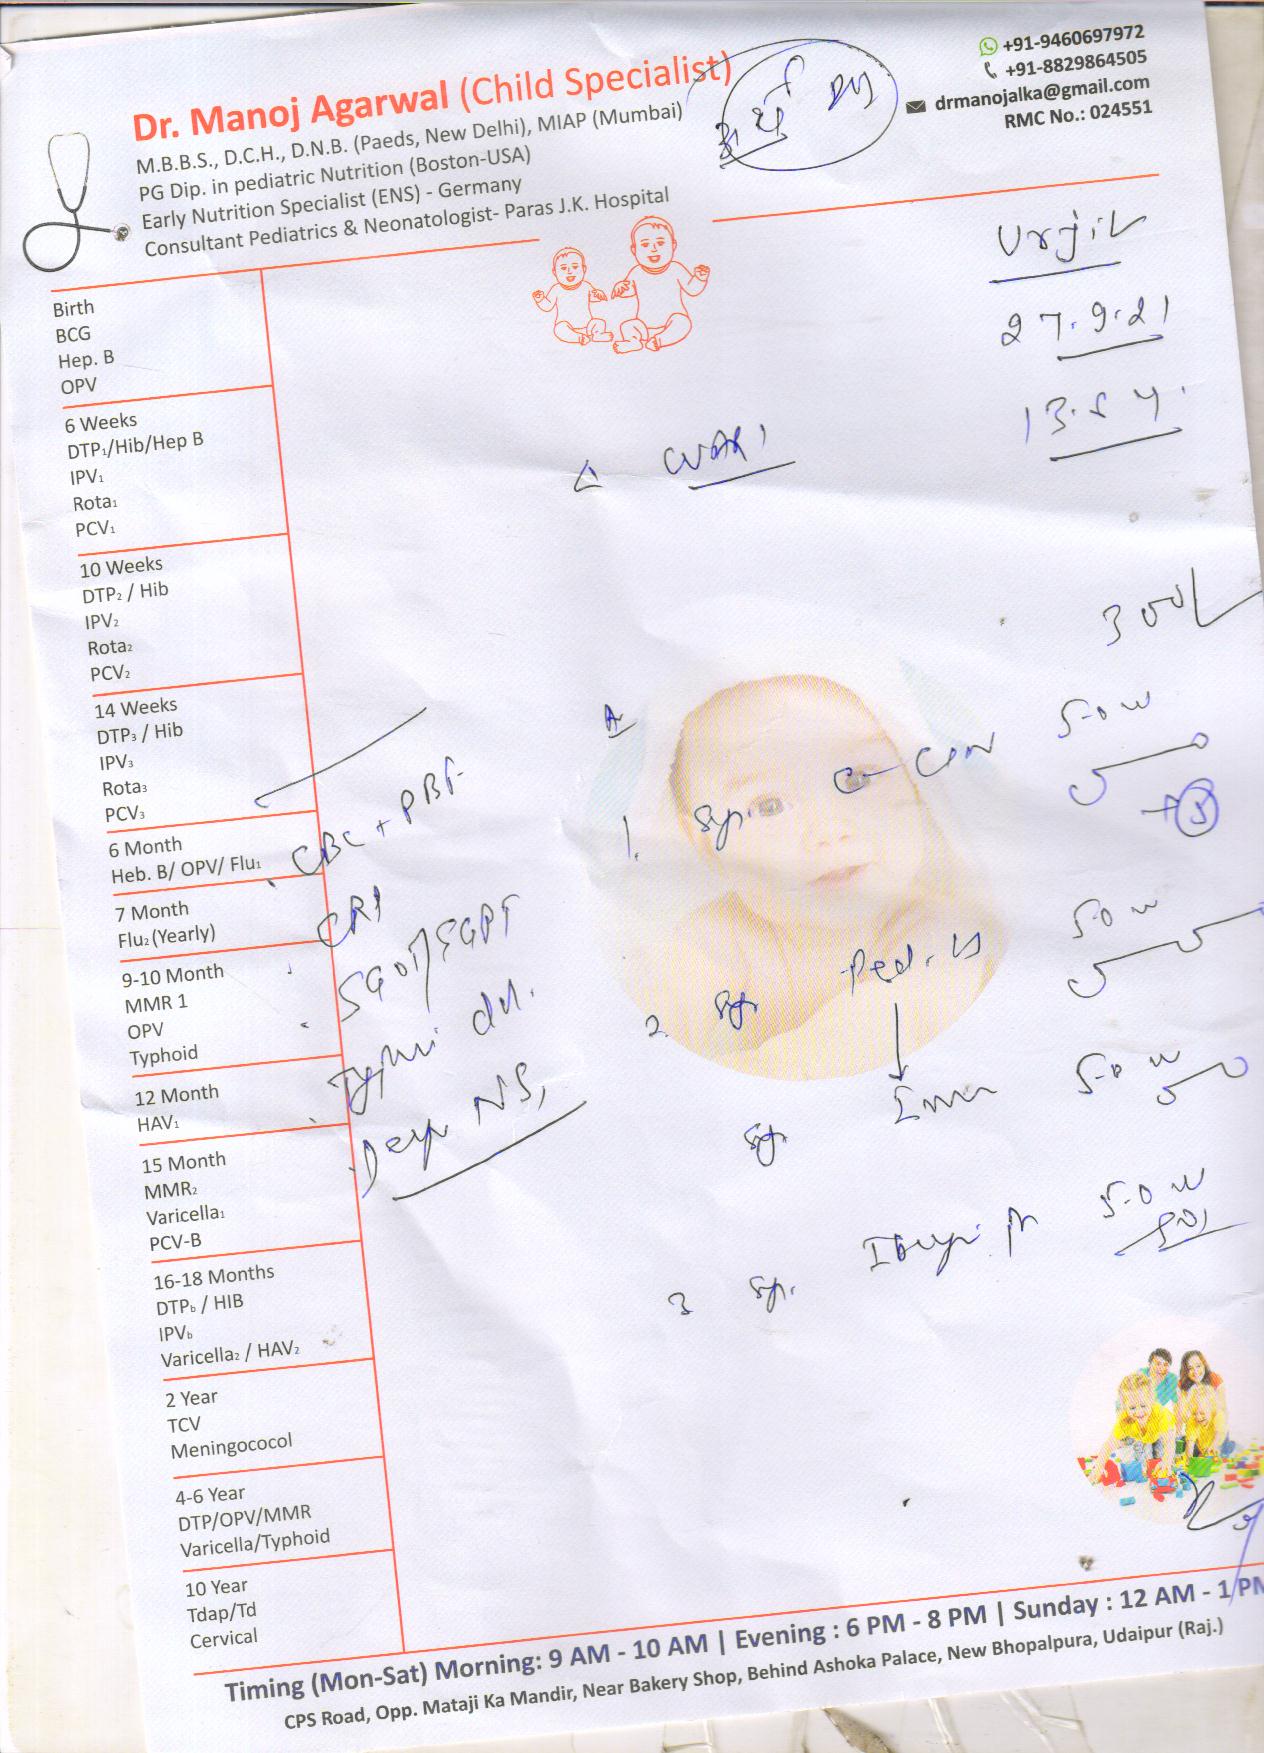 Dr. Manoj Agarwal (Child Specialist)
M.B.B.S., D.C.H., D.N.B. (Paeds, New Delhi), MIAP (Mumbai)
PG Dip. in pediatric Nutrition (Boston-USA)
Early Nutrition Specialist (ENS) - Germany
Consultant Pediatrics & Neonatologist- Paras J.K. Hospital
+91-9460697972
+91-8829864505
drmanojalka@gmail.com
RMC No.: 024551
27.9.21
Birth
BCG
Hep. B
OPV
6 Weeks
DTP₁/Hib/Hep B
IPV₁
Rota₁
PCV₁
10 Weeks
DTP₂ / Hib
IPV₂
Rota₂
PCV₂
14 Weeks
DTP₃ / Hib
IPV₃
Rota₃
PCV₃
6 Month
Heb. B/ OPV/ Flu₁
7 Month
Flu₂ (Yearly)
9-10 Month
MMR 1
OPV
Typhoid
12 Month
HAV₁
15 Month
MMR₂
Varicella₁
PCV-B
16-18 Months
DTPb / HIB
IPVb
Varicella₂ / HAV₂
2 Year
TCV
Meningococol
4-6 Year
DTP/OPV/MMR
Varicella/Typhoid
10 Year
Tdap/Td
Cervical
CBC + PBF
CRP
SGOT/SGPT
1. Syp.
5-0 ml
2. Syp
5-0 ml
Syp
5-0 ml
3 Syp.
5-0 ml
Timing (Mon-Sat) Morning: 9 AM - 10 AM | Evening : 6 PM - 8 PM | Sunday : 12 AM - 1 PM
CPS Road, Opp. Mataji Ka Mandir, Near Bakery Shop, Behind Ashoka Palace, New Bhopalpura, Udaipur (Raj.)